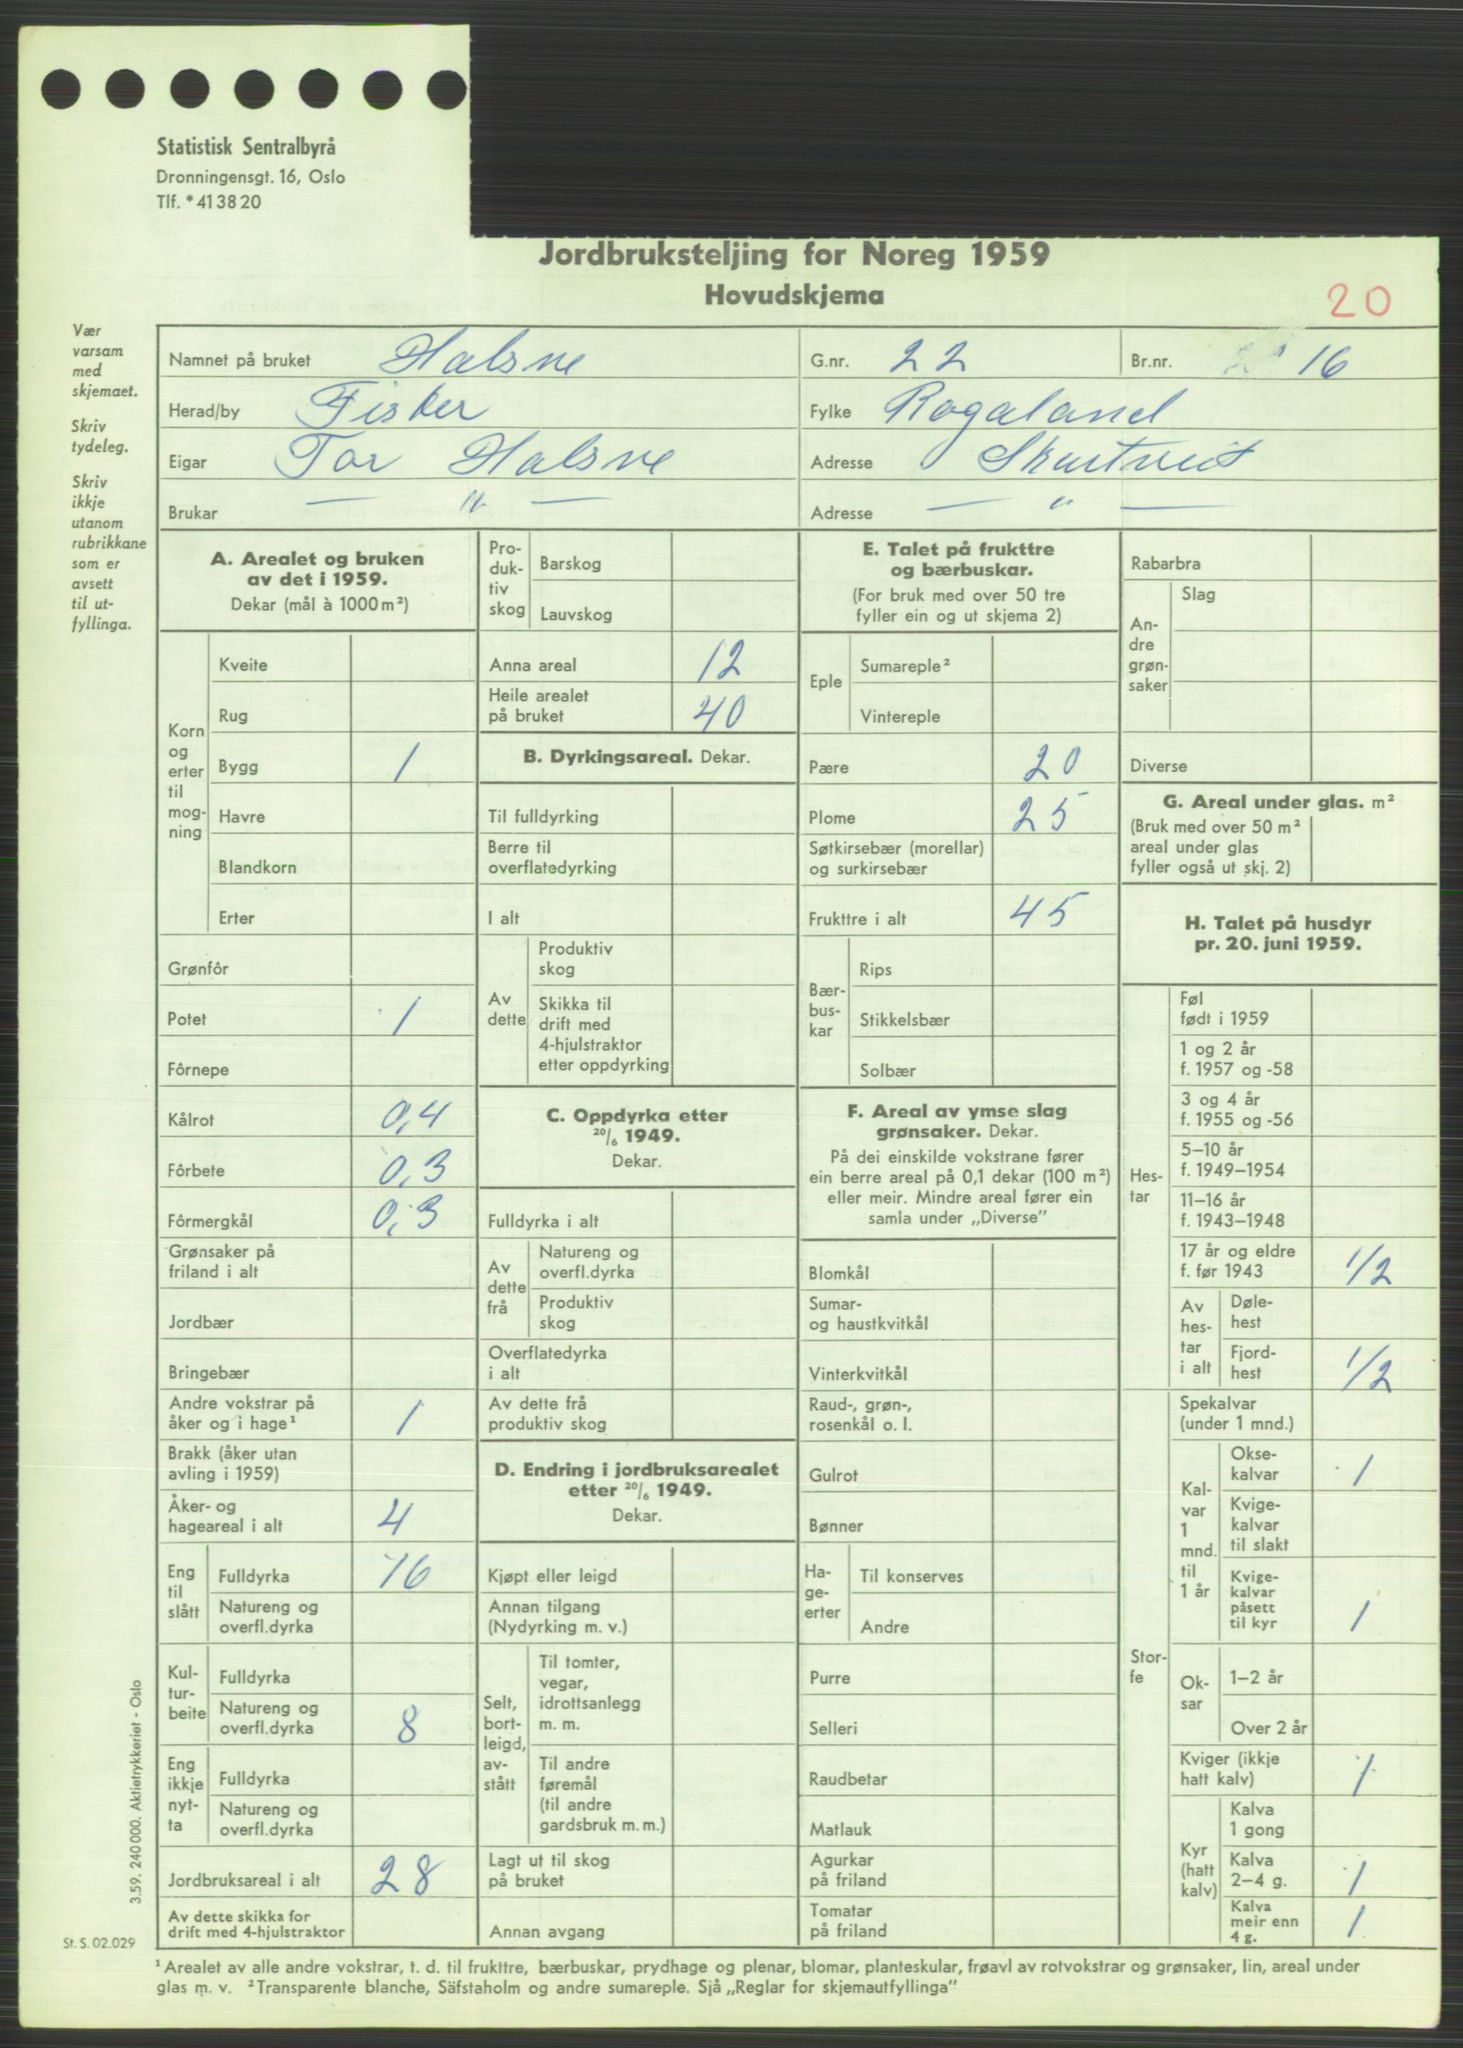 Statistisk Sentralbyrå
Dronningensgt. 16, Oslo
Tlf. *41 38 20
Jordbruksteljing for Noreg 1959
Hovudskjema
20
Vær
varsam
med
skjemaet.
Skriv
tydeleg.
Skriv
ikkje
utanom
rubrikkane
som er
avsett
til ut-
fyllinga.
Namnet på bruket Halsne G.nr. 22 Br.nr. 16
Herad/by Fister Fylke Rogaland
Eigar Tor Halsne Adresse
Brukar — " — Adresse — " —
A. Arealet og bruken
av det i 1959.
Dekar (mål à 1000 m²)
Korn
og
erter
til
mog-
ning
Kveite
Rug
Bygg 1
Havre
Blandkorn
Erter
Grønfôr
Potet 1
Fôrnepe
Kålrot 0,4
Fôrbete 0,3
Fôrmergkål 0,3
Grønsaker på
friland i alt
Jordbær
Bringebær
Andre vokstrar på
åker og i hage¹ 1
Brakk (åker utan
avling i 1959)
Åker- og
hageareal i alt 4
Eng
til
slått
Fulldyrka 16
Natureng og
overfl.dyrka
Kul-
tur-
beite
Fulldyrka
Natureng og
overfl.dyrka 8
Eng
ikkje
nyt-
ta
Fulldyrka
Natureng og
overfl.dyrka
Jordbruksareal i alt 28
Av dette skikka for
drift med 4-hjulstraktor
Pro-
duk-
tiv
skog
Barskog
Lauvskog
Anna areal 12
Heile arealet
på bruket 40
B. Dyrkingsareal. Dekar.
Til fulldyrking
Berre til
overflatedyrking
I alt
Av
dette
Produktiv
skog
Skikka til
drift med
4-hjulstraktor
etter oppdyrking
C. Oppdyrka etter
20/6 1949.
Dekar.
Fulldyrka i alt
Av
dette
frå
Natureng og
overfl.dyrka
Produktiv
skog
Overflatedyrka
i alt
Av dette frå
produktiv skog
D. Endring i jordbruksarealet
etter 20/6 1949.
Dekar.
Kjøpt eller leigd
Annan tilgang
(Nydyrking m. v.)
Selt,
bort-
leigd,
av-
stått
Til tomter,
vegar,
idrottsanlegg
m. m.
Til andre
føremål
(til andre
gardsbruk m. m.)
Lagt ut til skog
på bruket
Annan avgang
E. Talet på frukttre
og bærbuskar.
(For bruk med over 50 tre
fyller ein og ut skjema 2)
Eple
Sumareple²
Vintereple
Pære 20
Plome 25
Søtkirsebær (morellar)
og surkirsebær
Frukttre i alt 45
Bær-
bus-
kar
Rips
Stikkelsbær
Solbær
F. Areal av ymse slag
grønsaker. Dekar.
På dei einskilde vokstrane fører
ein berre areal på 0,1 dekar (100 m²)
eller meir. Mindre areal fører ein
samla under „Diverse”
Blomkål
Sumar-
og haustkvitkål
Vinterkvitkål
Raud-, grøn-,
rosenkål o. l.
Gulrot
Bønner
Ha-
ge-
erter
Til konserves
Andre
Purre
Selleri
Raudbetar
Matlauk
Agurkar
på friland
Tomatar
på friland
Rabarbra
An-
dre
grøn-
saker
Slag
Diverse
G. Areal under glas. m²
(Bruk med over 50 m²
areal under glas
fyller også ut skj. 2)
H. Talet på husdyr
pr. 20. juni 1959.
Hes-
tar
Føl
født i 1959
1 og 2 år
f. 1957 og -58
3 og 4 år
f. 1955 og -56
5–10 år
f. 1949–1954
11–16 år
f. 1943–1948
17 år og eldre
f. før 1943 1/2
Av
hes-
tar
i alt
Døle-
hest
Fjord-
hest 1/2
Stor-
fe
Spekalvar
(under 1 mnd.)
Kal-
var
1
mnd.
til
1 år
Okse-
kalvar 1
Kvige-
kalvar
til slakt
Kvige-
kalvar
påsett
til kyr 1
Ok-
sar
1–2 år
Over 2 år
Kviger (ikkje
hatt kalv) 1
Kyr
(hatt
kalv)
Kalva
1 gong
Kalva
2–4 g. 1
Kalva
meir enn
4 g. 1
3.59. 240 000. Aktietrykkeriet - Oslo
St. S. 02.029
¹ Arealet av alle andre vokstrar, t. d. til frukttre, bærbuskar, prydhage og plenar, blomar, planteskular, frøavl av rotvokstrar og grønsaker, lin, areal under
glas m. v. ² Transparente blanche, Säfstaholm og andre sumareple. Sjå „Reglar for skjemautfyllinga”